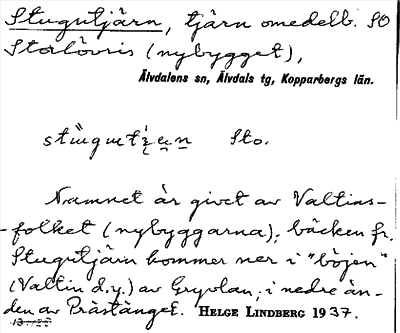 Stugutjärn, tjärn omedelb. SO
Storlövris (nybygget),
Älvdalens sn, Älvdals tg, Kopparbergs län.
Sto.
Namnet är givet av Valtins-
folket (nybyggarna); bäcken fr.
Stugutjärn kommer ner i "böjen"
(Valtin d.y.) av Gryvlan, i nedre än-
den av Prästänget. HELGE LINDBERG 1937.